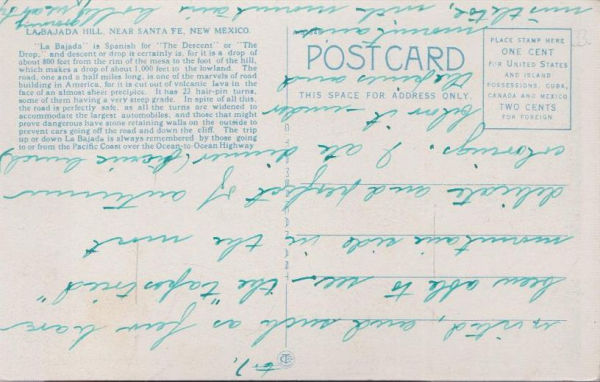 LA BAJADA HILL, NEAR SANTA FE, NEW MEXICO.
"La Bajada" is Spanish for "The Descent" or "The
Drop," and descent or drop it certainly is, for it is a drop of
about 800 feet from the rim of the mesa to the foot of the hill,
which makes a drop of about 1,000 feet to the lowland. The
road, one and a half miles long, is one of the marvels of road
building in America, for it is cut out of volcanic lava in the
face of an almost sheer precipice. It has 23 hair-pin turns,
some of them having a very steep grade. In spite of all this,
the road is perfectly safe, as all the turns are widened to
accommodate the largest automobiles, and those that might
prove dangerous have stone retaining walls on the outside to
prevent cars going off the road and down the cliff. The trip
up or down La Bajada is always remembered by those going
to or from the Pacific Coast over the Ocean-to-Ocean Highway
POSTCARD
THIS SPACE FOR ADDRESS ONLY.
PLACE STAMP HERE
ONE CENT
FOR UNITED STATES
AND ISLAND
POSSESSIONS, CUBA,
CANADA AND MEXICO
TWO CENTS
FOR FOREIGN
invited, and such as few have
been able to see — the "tapestried"
mountain side in the most
delicate and perfect of autumn
colorings. I ate dinner (picnic lunch)
below it — under
the pines and
mistletoe, with mountains